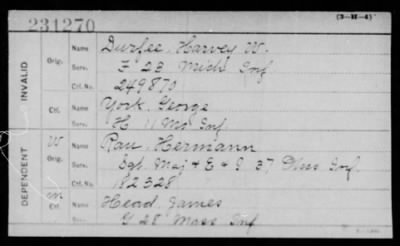 231270
(3-H-4)
INVALID
DEPENDENT
Orig. Name Durfee, Harvey W.
Serv. F 23 Mich Inf
Ctf. No. 249870
Ctf. Name York, George
Serv. H 11 Mo Inf
W
Orig. Name Rau, Hermann
Serv. Sgt Maj & E & I 37 Inf
Ctf. No. 182328
M
Ctf. Name Head, James
Serv. G 28 Mass Inf